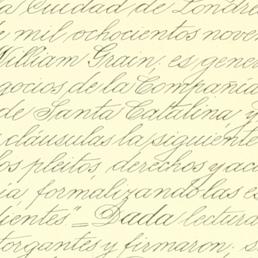 a Ciudad de Londre
e mil ochocientos noven
William Grain: es gener
gocios de la Compañía
de Santa Cattalina y
cláusulas la siguiente
los pleitos, derechos y ac
ía, formalizando las es
dientes" = Dada lectura
torgantes y firmaron; s